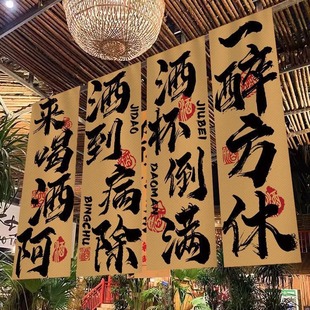 来喝酒阿
酒到病除
JIDAO
BINGCHU
酒杯倒满
JIUBEI
DAOMAN
一醉方休